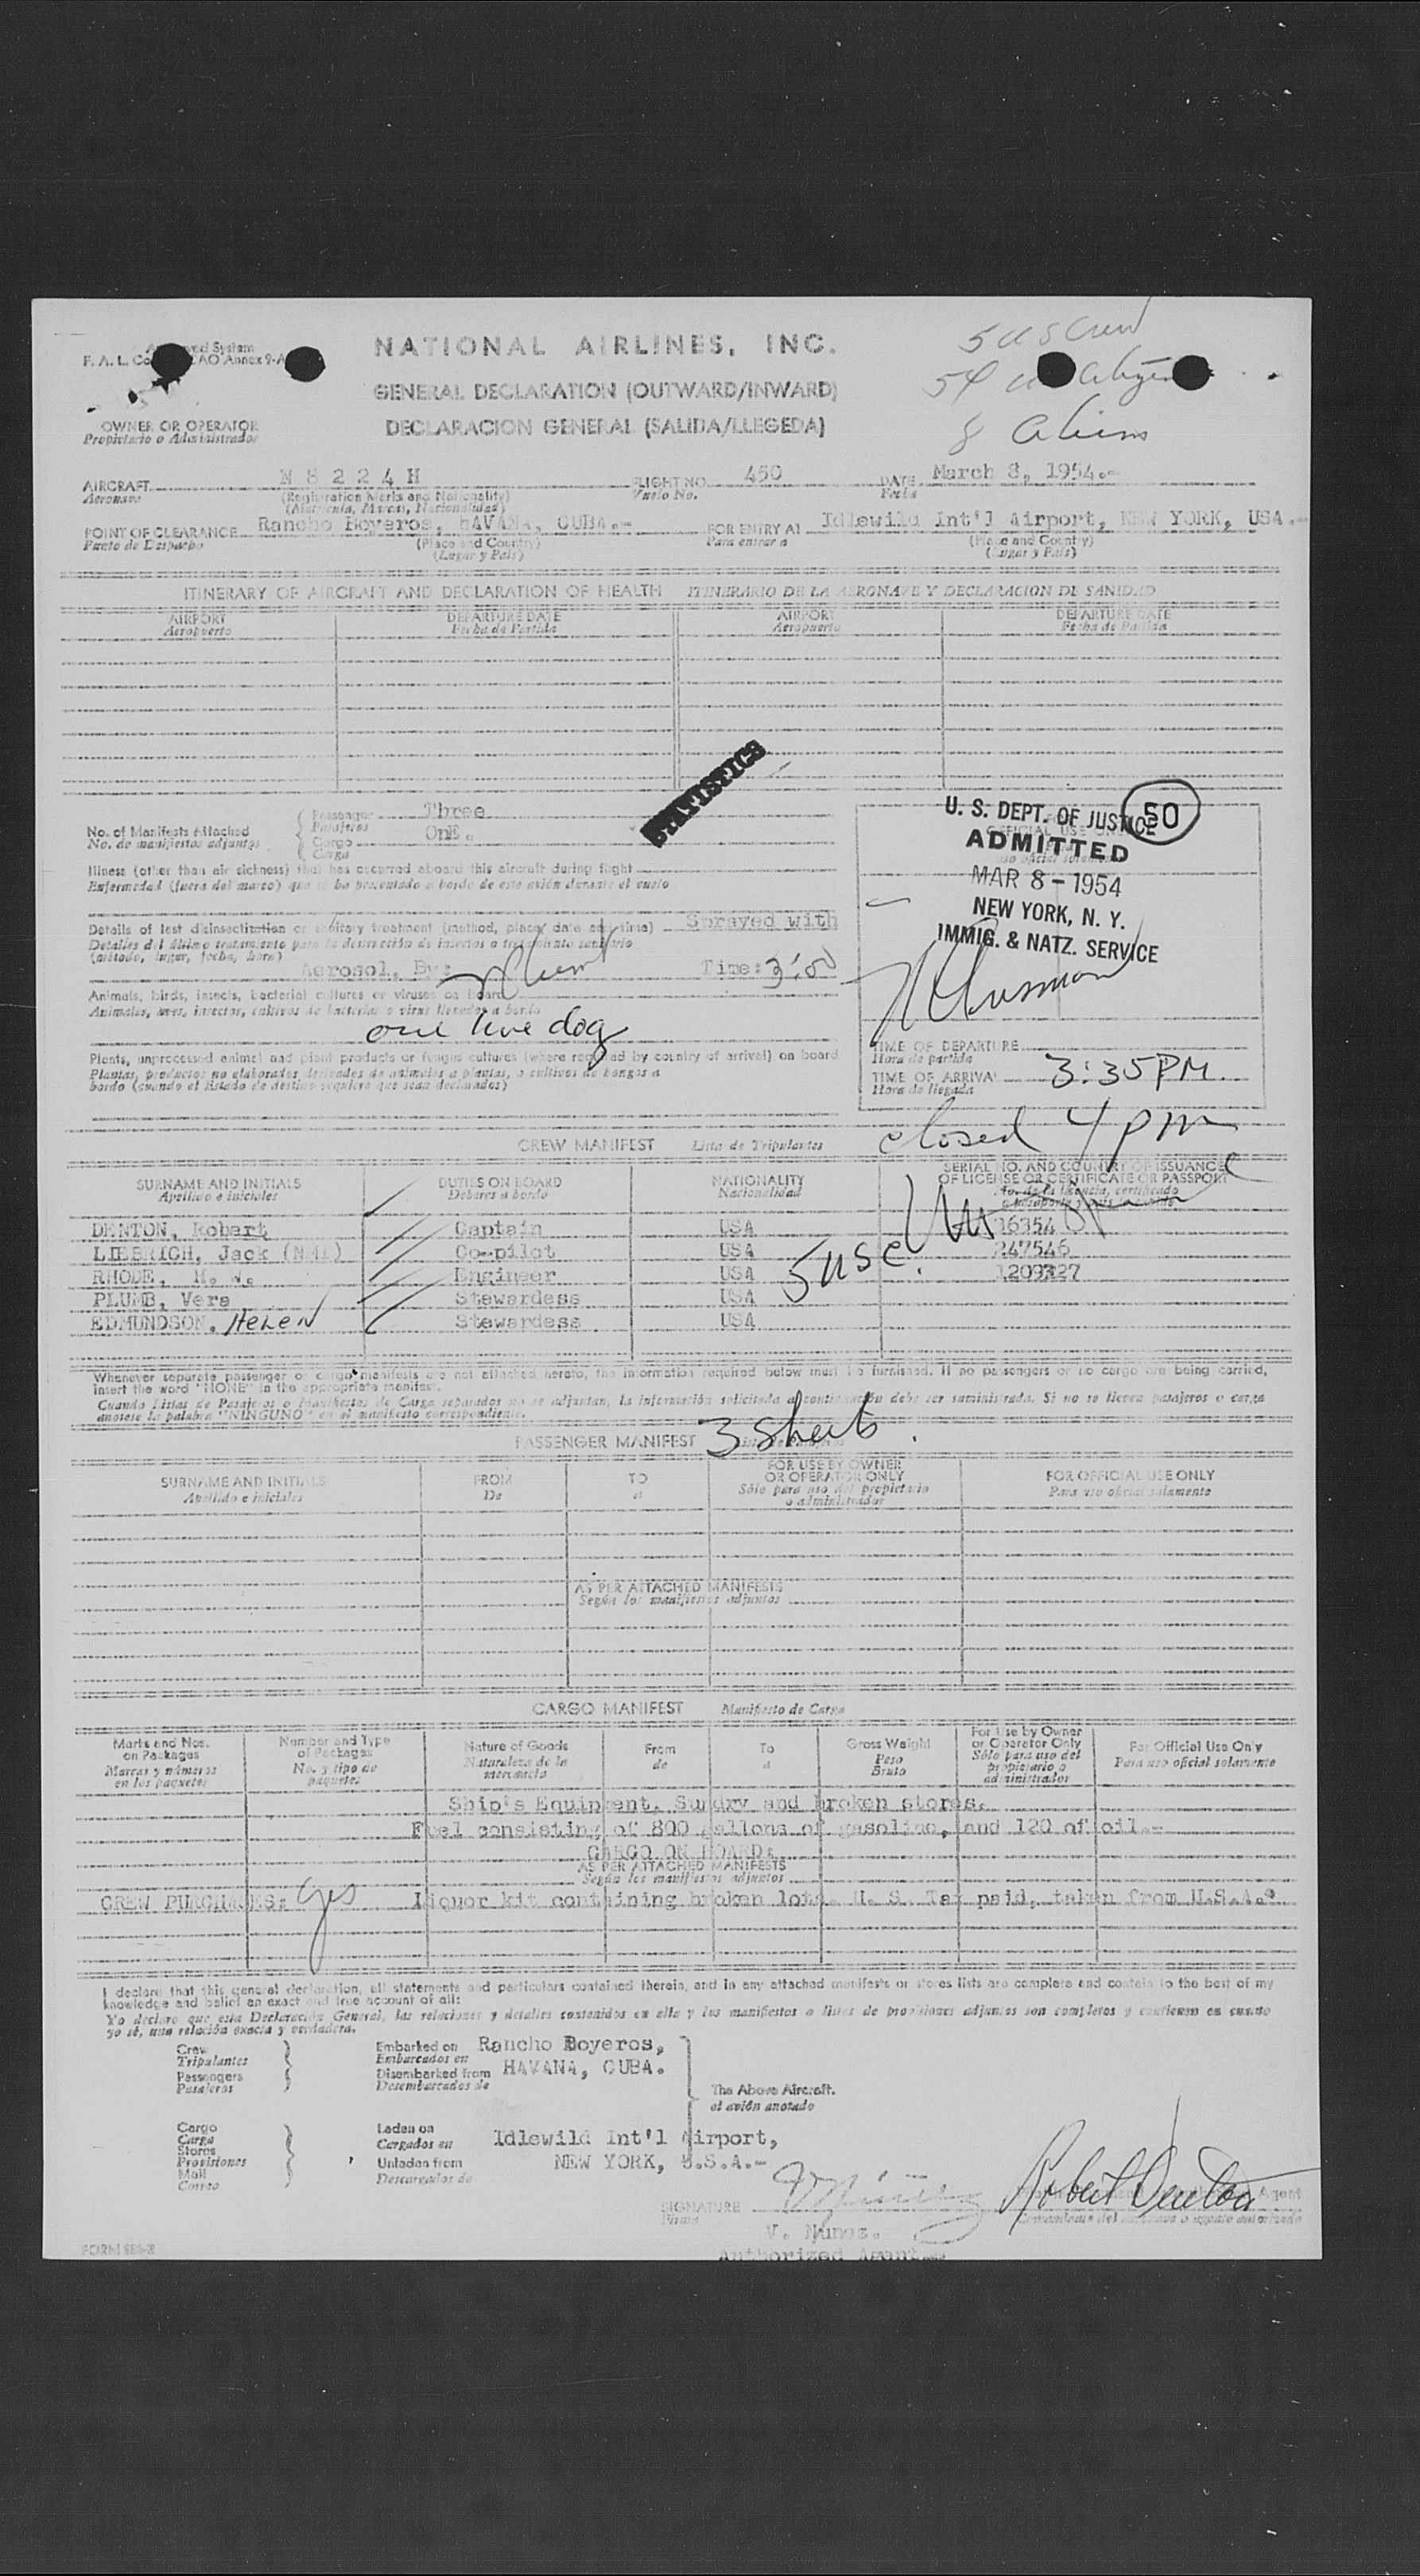 NATIONAL AIRLINES, INC.
5 US Crew
F. A. L.
Annex 9-A
GENERAL DECLARATION (OUTWARD/INWARD)
54
DECLARACION GENERAL (SALIDA/LLEGEDA)
8 aliens
OWNER OR OPERATOR
Propietario o Administrador
AIRCRAFT N 8 2 2 4 H FLIGHT NO. 450 DATE March 8, 1954.-
Aeronave (Registration Marks and Nationality) Vuelo No. Fecha
(Matricula, Marcas, Nacionalidad)
POINT OF CLEARANCE Rancho Boyeros, HAVANA, CUBA.- FOR ENTRY AT Idlewild Int'l Airport, NEW YORK, USA.-
Puerto de Despacho (Place and Country) Para entrar a (Place and Country)
(Lugar y País) (Lugar y País)
ITINERARY OF AIRCRAFT AND DECLARATION OF HEALTH ITINERARIO DE LA AERONAVE Y DECLARACION DE SANIDAD
AIRPORT DEPARTURE DATE AIRPORT DEPARTURE DATE
Aeropuerto Fecha de Partida Aeropuerto Fecha de Partida
STATISTICS
No. of Manifests Attached Passenger Three
No. de manifiestos adjuntos Pasajeros
Cargo OnE.
Carga
U. S. DEPT. OF JUSTICE 50
ADMITTED
MAR 8 - 1954
NEW YORK, N. Y.
IMMIG. & NATZ. SERVICE
Illness (other than air sickness) that has occurred aboard this aircraft during flight
Enfermedad (fuera del mareo) que se ha presentado a bordo de este avión durante el vuelo
Details of last disinsectization or sanitary treatment (method, place, date and time) Sprayed with
Detalles del último tratamiento para la destrucción de insectos o tratamiento sanitario
(método, lugar, fecha, hora)
Aerosol. By: Time: 3:00
Animals, birds, insects, bacterial cultures or viruses on board
Animales, aves, insectos, cultivos de bacterias o virus llevados a bordo
one live dog
Plants, unprocessed animal and plant products or fungus cultures (where required by country of arrival) on board
Plantas, productos no elaborados derivados de animales o plantas, o cultivos de hongos a
bordo (cuando el Estado de destino requiere que sean declarados)
TIME OF DEPARTURE
Hora de partida
TIME OF ARRIVAL 3:35 PM
Hora de llegada
closed 4 pm
CREW MANIFEST Lista de Tripulantes
SURNAME AND INITIALS DUTIES ON BOARD NATIONALITY SERIAL NO. AND COUNTRY OF ISSUANCE
Apellido e iniciales Deberes a bordo Nacionalidad OF LICENSE OR CERTIFICATE OR PASSPORT
DENTON, Robert Captain USA 16354
LIEBRICH, Jack (NMI) Co-pilot USA 247546
RHODE, Engineer USA 1209327
PLUMB, Vera Stewardess USA
EDMUNDSON, Helen Stewardess USA
5 USC.
Whenever separate passenger or cargo manifests are not attached hereto, the information required below must be furnished. If no passengers or no cargo are being carried,
insert the word "NONE" in the appropriate manifest.
Cuando Listas de Pasajeros o Manifiestos de Carga separados no se adjuntan, la información solicitada a continuación debe ser suministrada. Si no se llevan pasajeros o carga
anótese la palabra "NINGUNO" en el manifiesto correspondiente.
PASSENGER MANIFEST 3 Sheets.
SURNAME AND INITIALS FROM TO FOR USE BY OWNER OR OPERATOR ONLY FOR OFFICIAL USE ONLY
Apellido e iniciales De a Sólo para uso del propietario o administrador Para uso oficial solamente
AS PER ATTACHED MANIFESTS
Según los manifiestos adjuntos
CARGO MANIFEST Manifiesto de Carga
Marks and Nos. on Packages Number and Type of Packages Nature of Goods From To Gross Weight For Use by Owner or Operator Only For Official Use Only
Marcas y números en los paquetes No. y tipo de paquetes Naturaleza de la mercancía de a Peso Bruto Sólo para uso del propietario o administrador Para uso oficial solamente
Ship's Equipment, Sundry and broken stores.
Fuel consisting of 800 gallons of gasoline, and 120 of oil.-
CARGO ON BOARD:
AS PER ATTACHED MANIFESTS
Según los manifiestos adjuntos
CREW PURCHASES: yes Liquor kit containing broken lots. U. S. Tax paid, taken from U.S.A.-
I declare that this general declaration, all statements and particulars contained therein, and in any attached manifests or stores lists are complete and contain to the best of my
knowledge and belief an exact and true account of all:
Yo declaro que esta Declaración General, las relaciones y detalles contenidos en ella y los manifiestos o listas de provisiones adjuntos son completos y contienen en cuanto
yo sé, una relación exacta y verdadera.
Crew Embarked on Rancho Boyeros,
Tripulantes Embarcados en
Passengers Disembarked from HAVANA, CUBA.
Pasajeros Desembarcados de
The Above Aircraft.
el avión anotado
Cargo Laden on
Carga Cargados en Idlewild Int'l Airport,
Stores
Provisiones Unladen from NEW YORK, U.S.A.-
Mail Descargados de
Correo
SIGNATURE Robert Denton Agent
Firma
V. Nunez.
Authorized Agent